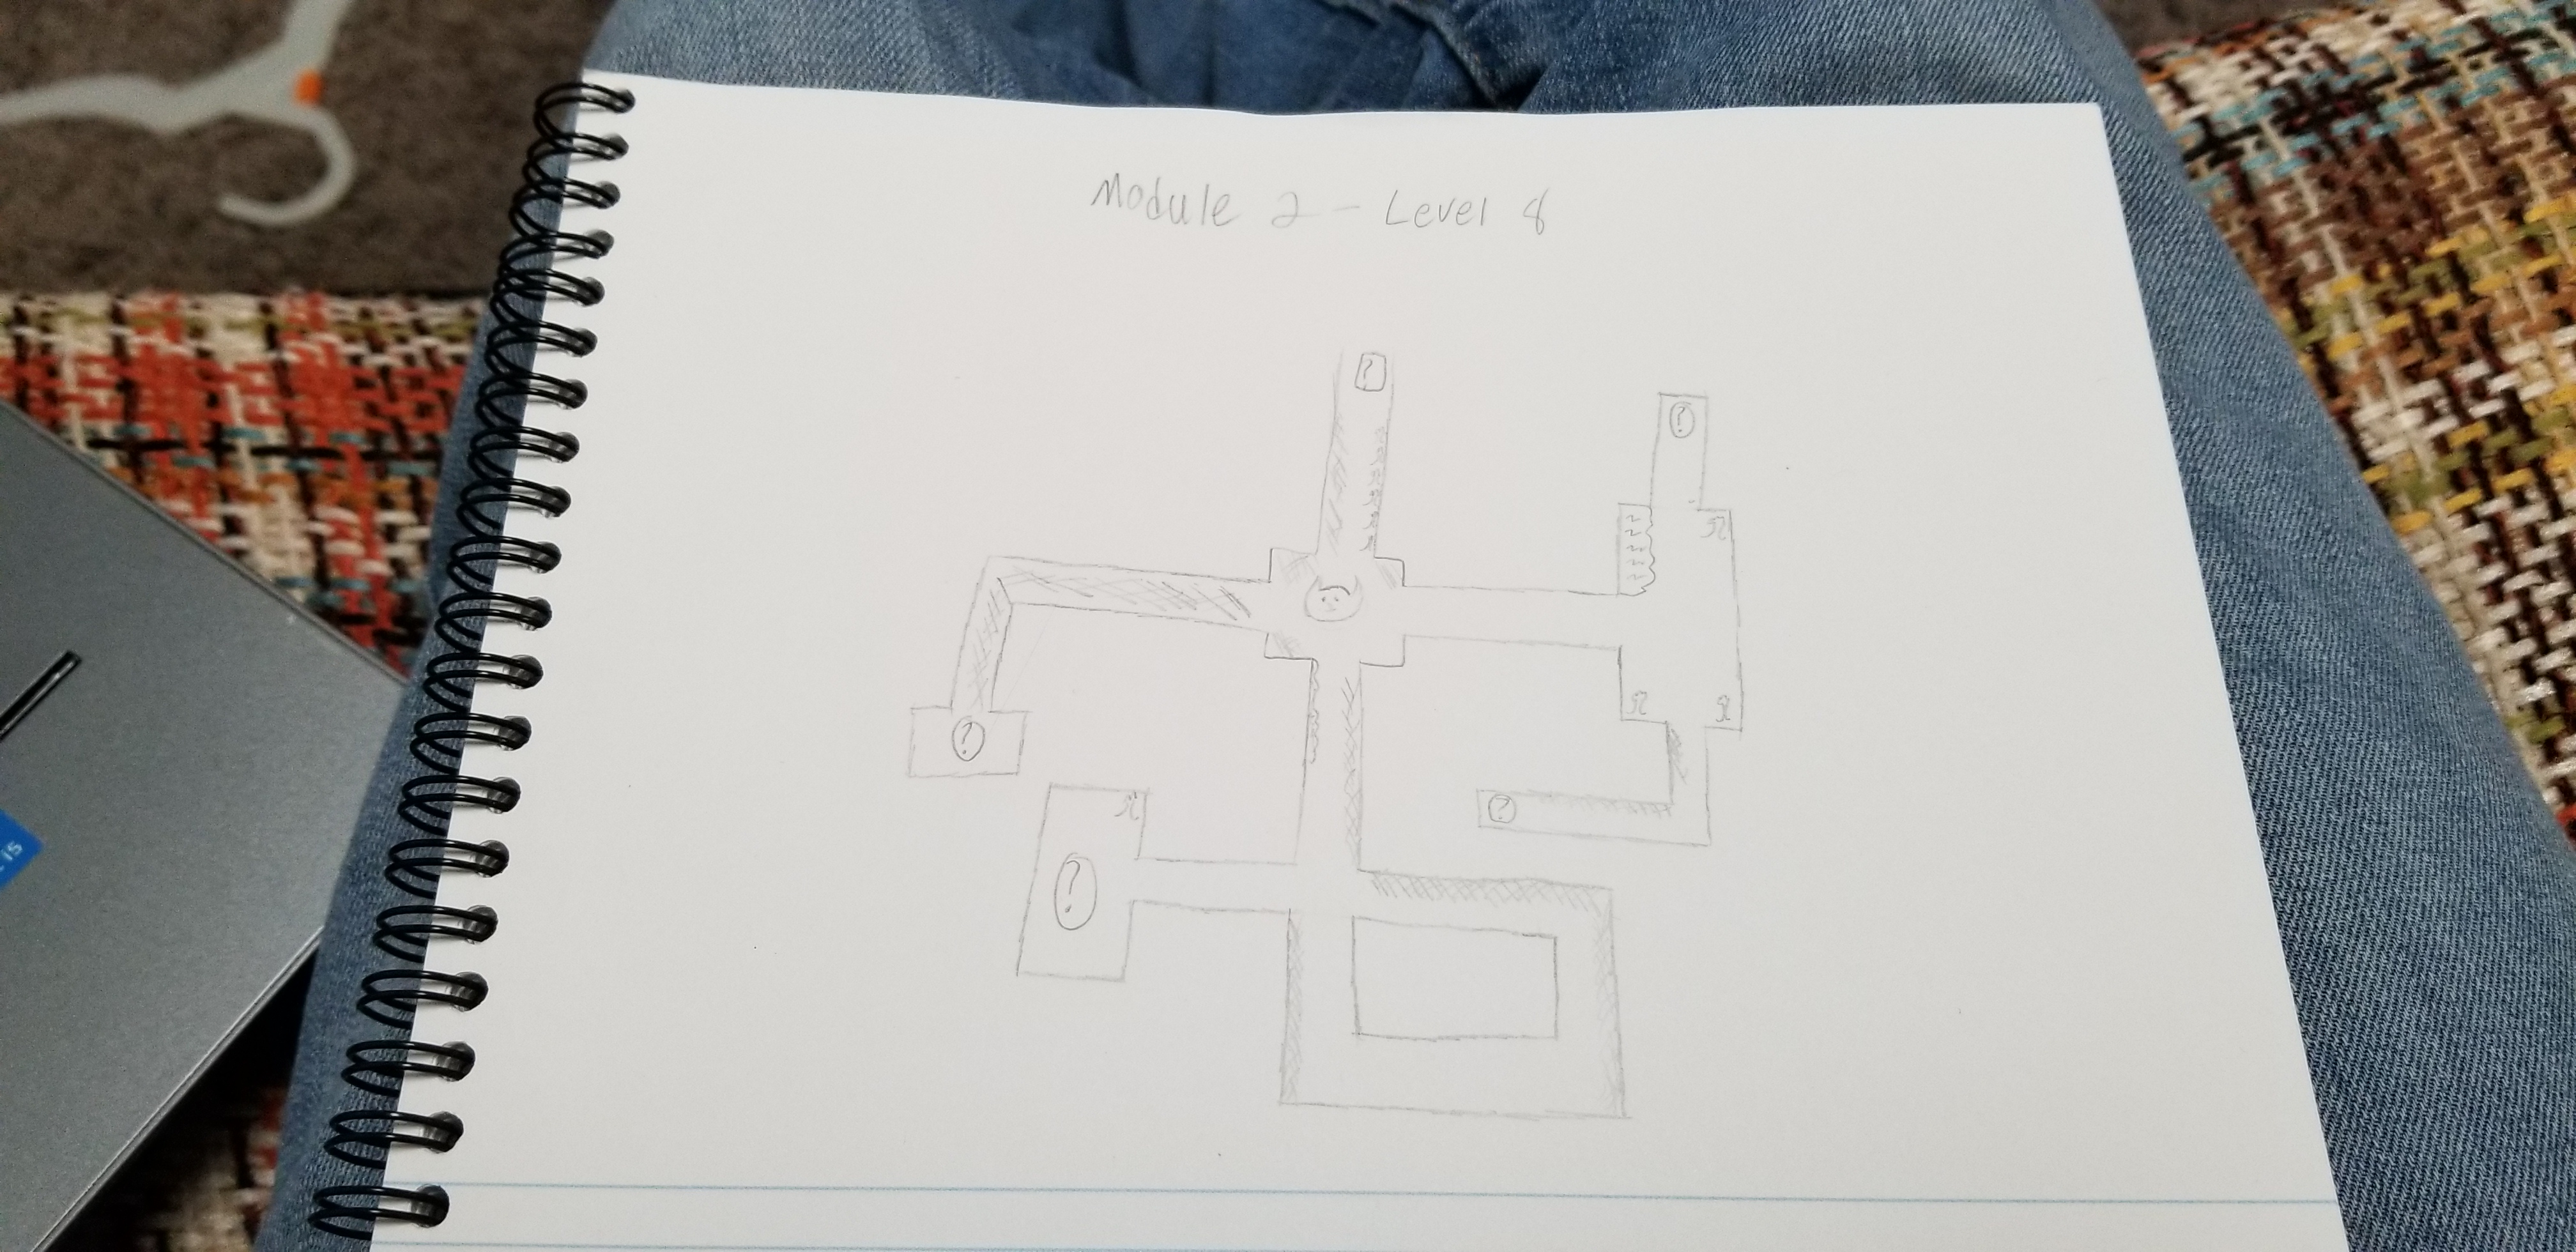 Module 2 - Level 8
?
?
?
?
?
is